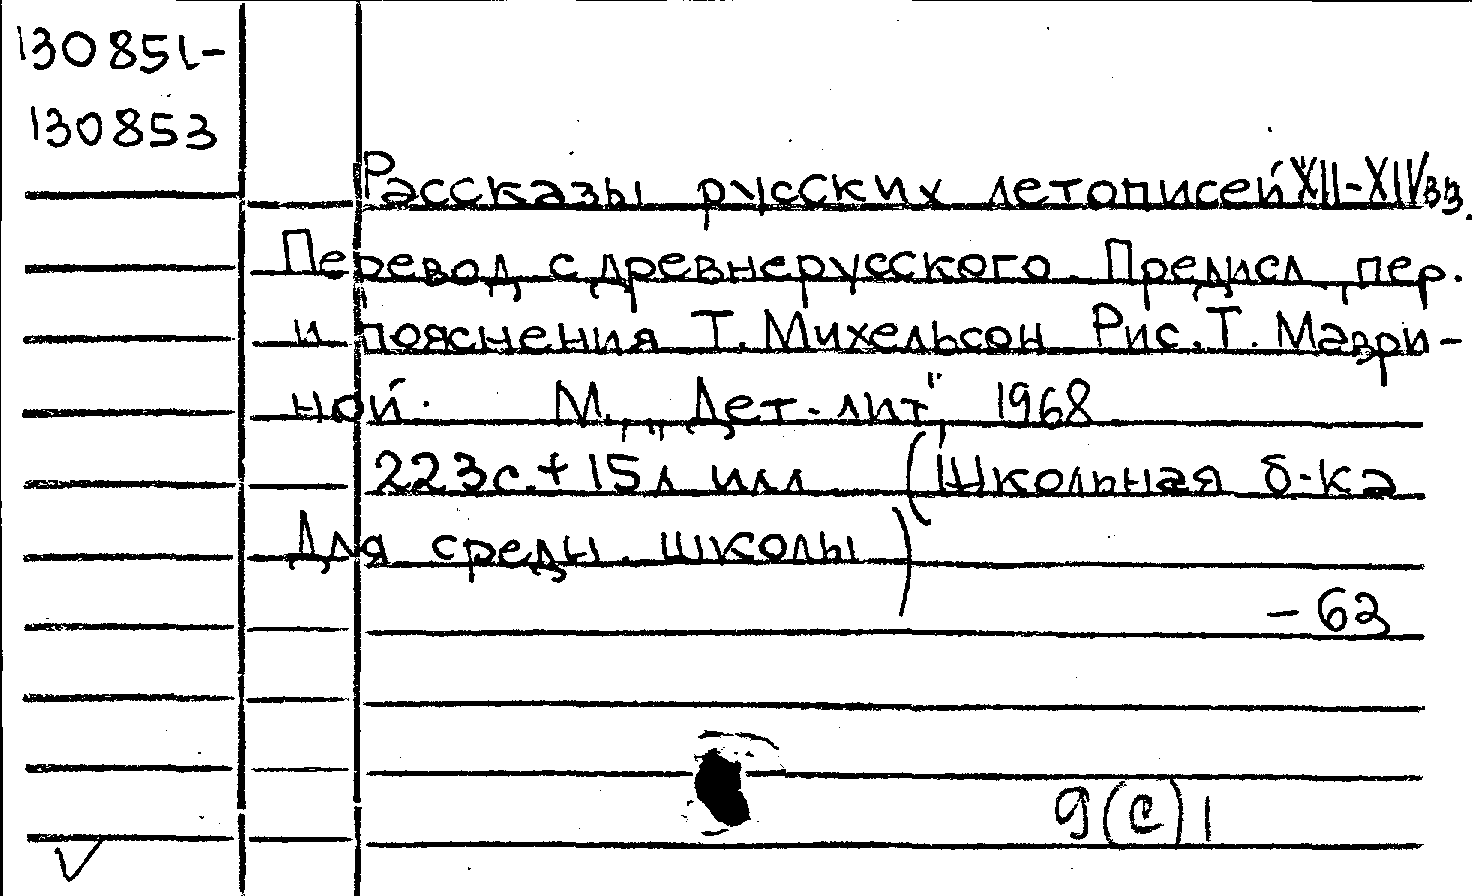 130851-
130853
Рассказы русских летописей XII-XIV вв.
Перевод с древнерусского. Предисл., пер.
и пояснения Т. Михельсон Рис. Т. Маври-
ной. М., „Дет. лит", 1968
223с. + 15 л илл (Школьная б-ка
Для средн. школы)
- 63
9(с)1